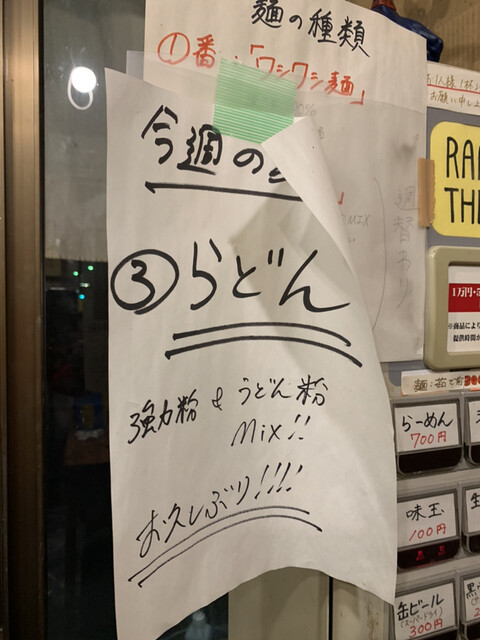 麺の種類
①番…「ワシワシ麺」
お1人様1杯
お願い申し上
今週の
MIX
週替わり
RA
TH
③らどん
1万円・5
※商品により
提供時間が
強力粉&うどん粉
Mix!!
お久しぶり!!!!
麺:茹で前300
らーめん
700円
味玉
100円
缶ビール
(スーパードライ)
300円